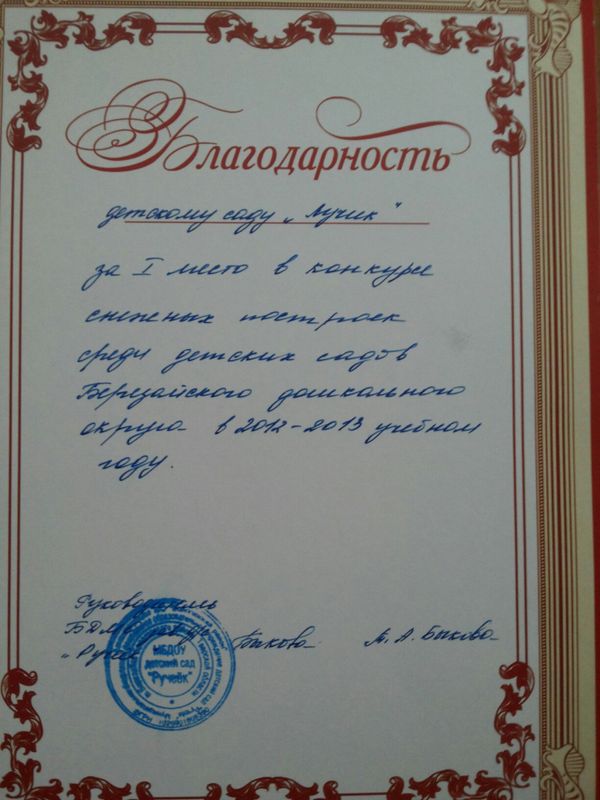 Благодарность
детскому саду „Лучик"
за I место в конкурсе
снежных построек
среди детских садов
Березайского дошкольного
округа в 2012-2013 учебном
году.
Руководитель
Быкова М. А. Быкова
МБДОУ
детский сад
"Ручеёк"